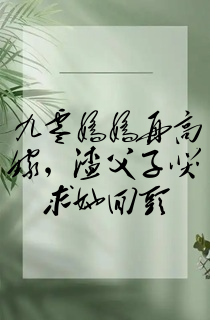 九零嬌嬌再高
嫁，渣父子哭
求她回頭